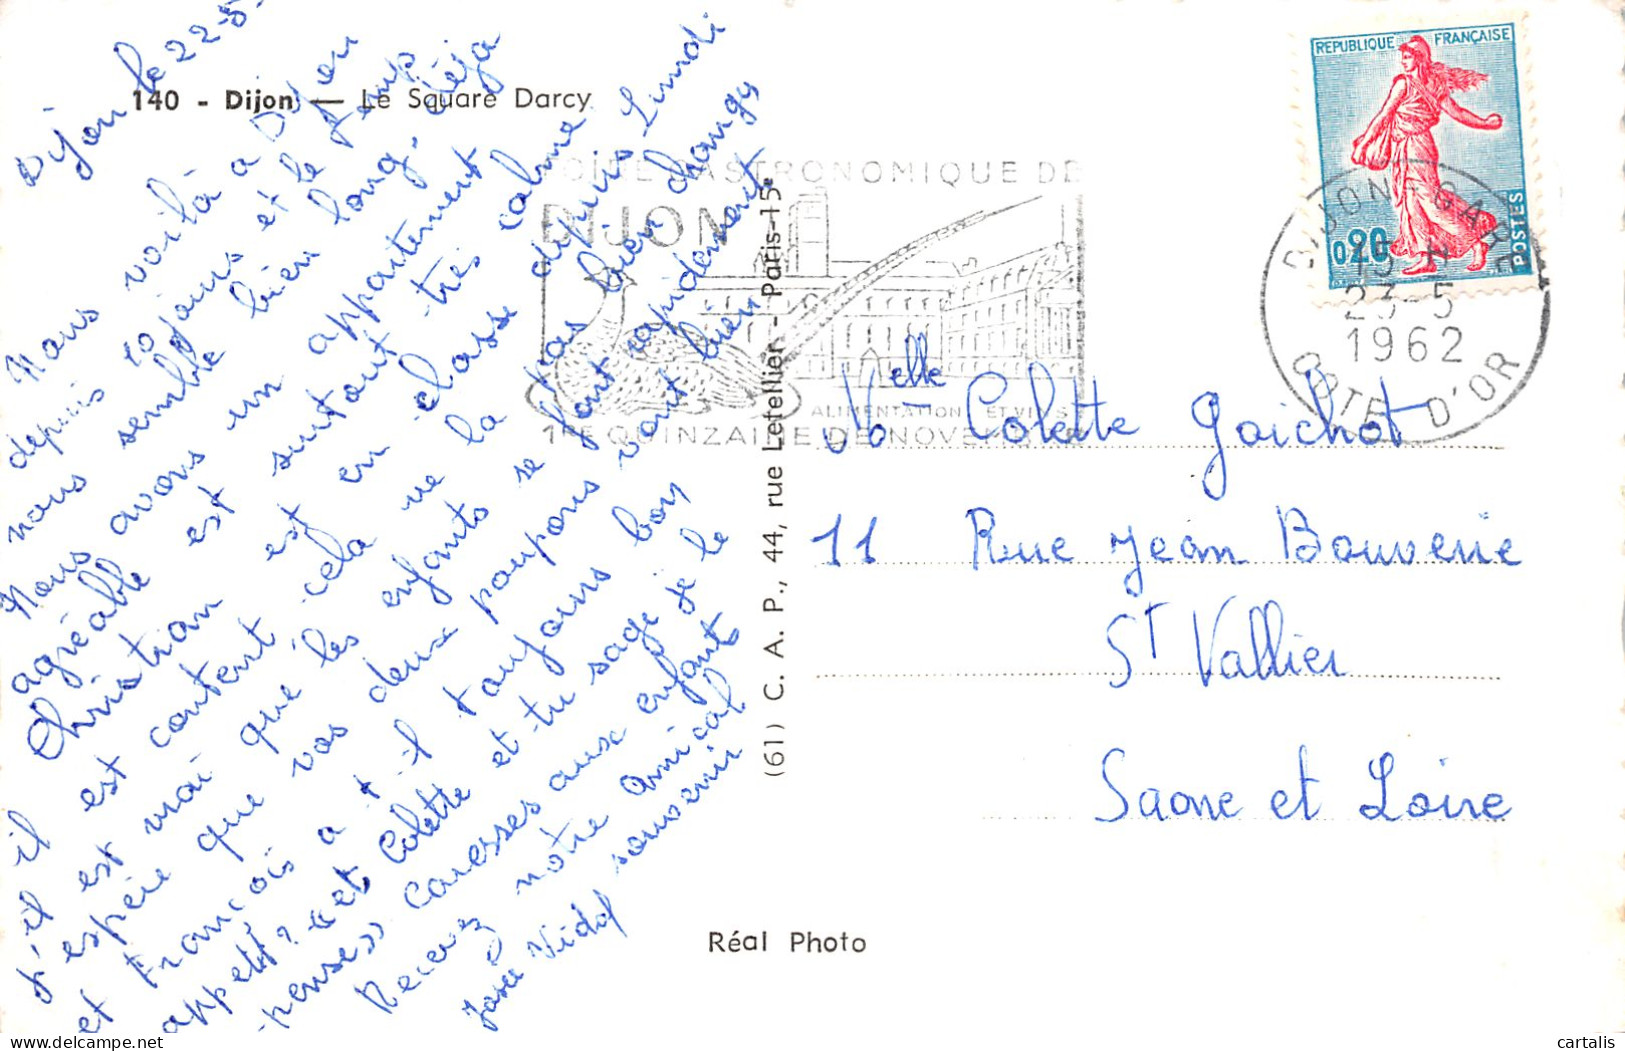 140 - Dijon — Le Square Darcy
Dijon le 22-5-
Nous voilà à Dijon
depuis 10 jours et le temps
nous semble bien long, déja
Nous avons un appartement
agréable est surtout très calme.
Christian est en classe depuis Lundi
il est content cela ne la pas bien changy
s'il est vrai que les enfants se font rapidement
J'espère que vos deux poupons vont bien
et François a t il toujours bon
appetit? et Colette et tu sage je le
penses)) caresses aux enfants
Recevez notre Amical
souvenir
Josée Vidal
(61) C. A. P., 44, rue Letellier - Paris-15e
Réal Photo
REPUBLIQUE FRANÇAISE
0,20
POSTES
DIJON GARE
15 H
23-5
1962
COTE D'OR
GASTRONOMIQUE DE
DIJON
ALIMENTATION ET VINS
1RE QUINZAINE DE NOVEMBRE
Melle Colette Gaichot
11 Rue Jean Bouverie
St Vallier
Saone et Loire
cartalis